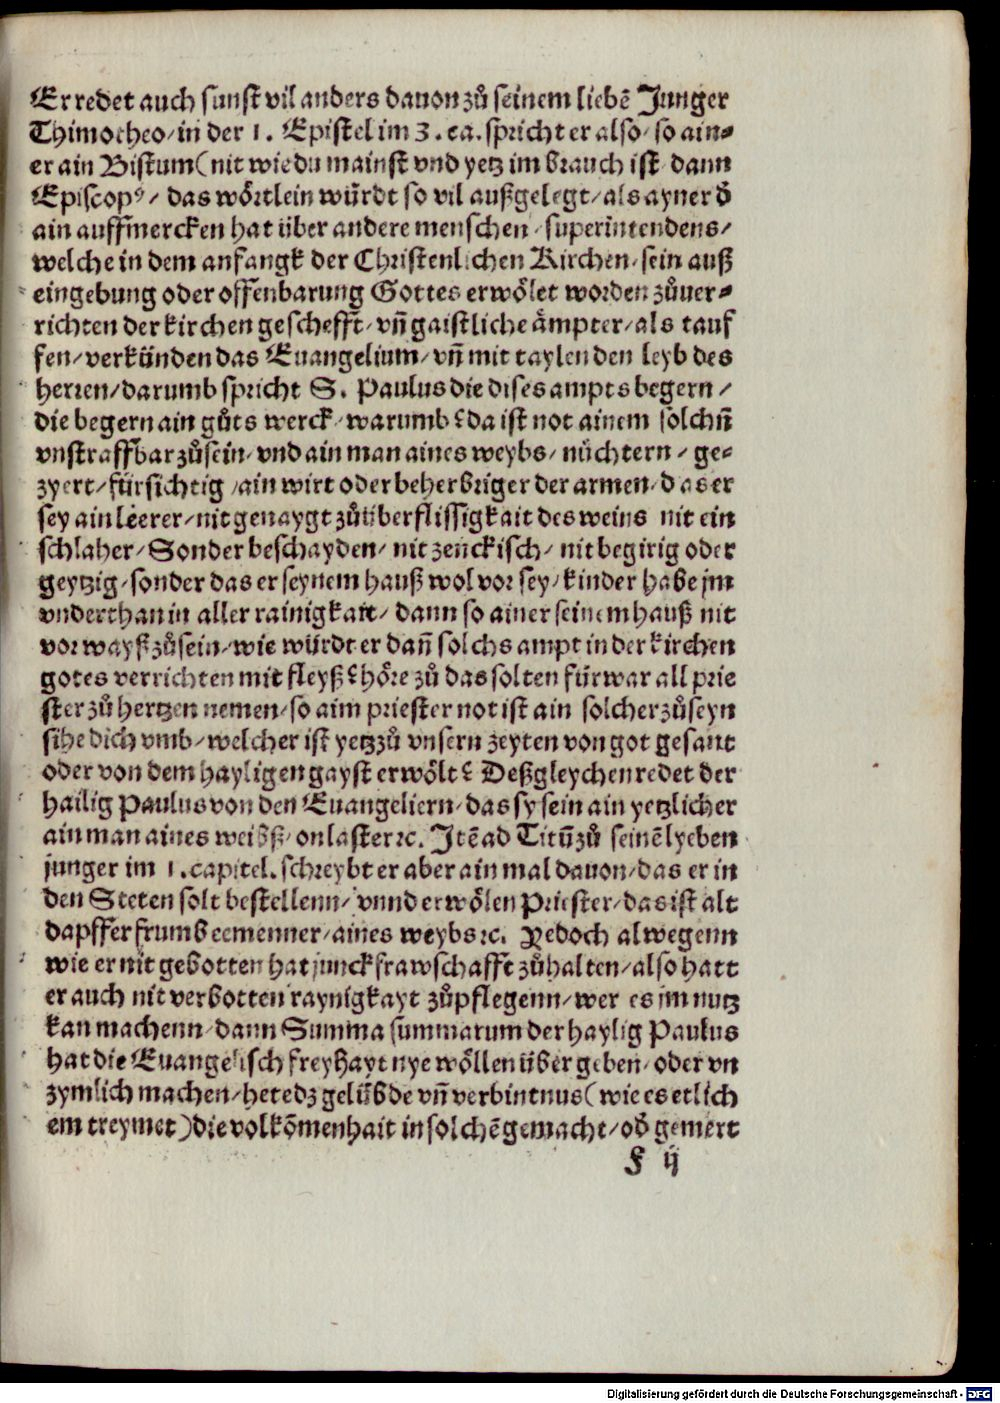 Er redet auch sunst vil anders dauon zů seinem liebẽ Junger
Thimotheo/ in der 1. Epistel im 3. ca. spricht er also/ so ain⸗
er ain Bistum (nit wie du mainst vnd yetz im brauch ist/ dann
Episcopꝰ/ das wörtlein würdt so vil außgelegt/ als ayner d̕
ain auffmercken hat über andere menschen/ superintendens/
welche in dem anfangk der Christenlichen Kirchen/ sein auß
eingebung oder offenbarung Gottes erwölet worden zůuer⸗
richten der kirchen geschefft/ vñ gaistliche åmpter/ als tauf
fen/ verkünden das Euangelium/ vñ mit taylen den leyb des
herren/ darumb spricht S. Paulus die dises ampts begern/
die begern ain gůts werck/ warumb? da ist not ainem solchñ
vnstraffbar zůsein/ vnd ain man aines weybs/ nüchtern/ ge⸗
zyert/ fürsichtig/ ain wirt oder beherbriger der armen/ das er
sey ain leerer/ nit genaygt zů überflissigkait des weins nit ein
schlaher/ Sonder beschayden/ nit zenckisch/ nit begirig oder
geytzig/ sonder das er seynem hauß wol vor sey/ kinder habe jm
vnderthan in aller rainigkait/ dann so ainer seinem hauß nit
vor wayst zůsein/ wie würdt er dañ solchs ampt in der kirchen
gotes verrichten mit fleyß? höre zů das solten fürwar all prie
ster zů hertzen nemen/ so aim priester not ist ain solcher zůseyn
sihe dich vmb/ welcher ist yetz zů vnsern zeyten von got gesant
oder von dem hayligen gayst erwölt? Deßgleychen redet der
hailig Paulus von den Euangeliern/ das sy sein ain yetzlicher
ain man aines weibß/ on laster ꝛc. Jtẽ ad Titũ zů seinẽ lyeben
junger im 1. capitel. schreybt er aber ain mal dauon/ das er in
den Steten solt bestellenn/ vnnd erwölen Priester/ das ist alt
dapffer frumb eemenner/ aines weybs ꝛc. Yedoch alwegenn
wie er nit gebotten hat junckfrawschafft zůhalten/ also hatt
er auch nit verbotten raynigkayt zůpflegenn/ wer es im nutz
kan machenn/ dann Summa summarum der haylig Paulus
hat die Euangelisch freyhayt nye wöllen über geben/ oder vn
zymlich machen/ het edz gelübde vñ verbintnus (wie es etlich
em treymet) die volkõmenhait in solchẽ gemacht/ od̕ gemert
F ij
Digitalisierung gefördert durch die Deutsche Forschungsgemeinschaft - DFG